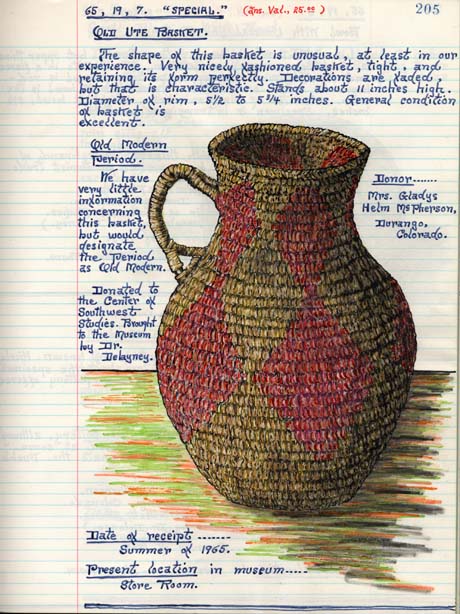 65, 19, 7. "SPECIAL." (Ins. Val., 25.00) 205
OLD UTE BASKET.
The shape of this basket is unusual, at least in our
experience. Very nicely fashioned basket, tight, and
retaining its form perfectly. Decorations are faded,
but that is characteristic. Stands about 11 inches high.
Diameter of rim, 5 1/2 to 5 3/4 inches. General condition
of basket is
excellent.
Old Modern
Period.
We have
very little
information
concerning
this basket,
but would
designate
the Period
as Old Modern.
Donated to
the Center of
Southwest
Studies. Brought
to the Museum
by Dr.
Delayney.
Donor.......
Mrs. Gladys
Helm McPherson,
Durango,
Colorado.
Date of receipt -------
Summer of 1965.
Present location in museum-----
Store Room.